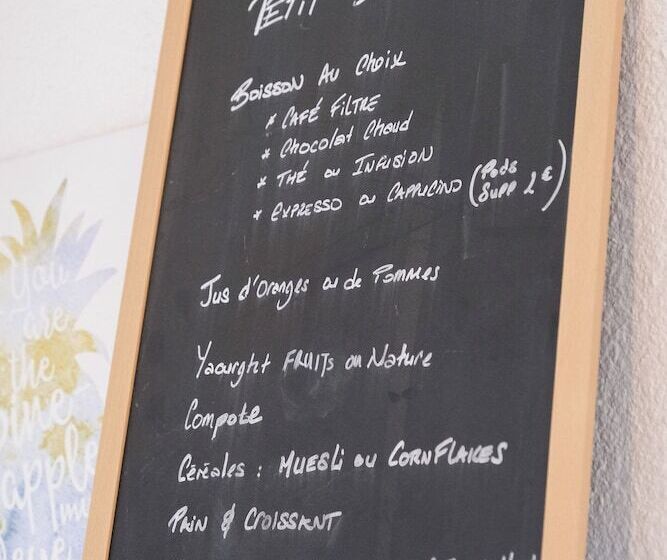 PETIT
BOISSON AU Choix
* CAFÉ FILTRE
* Chocolat Chaud
* THÉ ou INFUSION
* EXPRESSO ou CAPPUCINO (Pods Supp 2€)
Jus d'Oranges ou de Pommes
Yaourght FRUITS ou Nature
Compote
Céréales : MUESLI ou CORNFLAKES
PAIN & CROISSANT
You
are
the
pine
apple